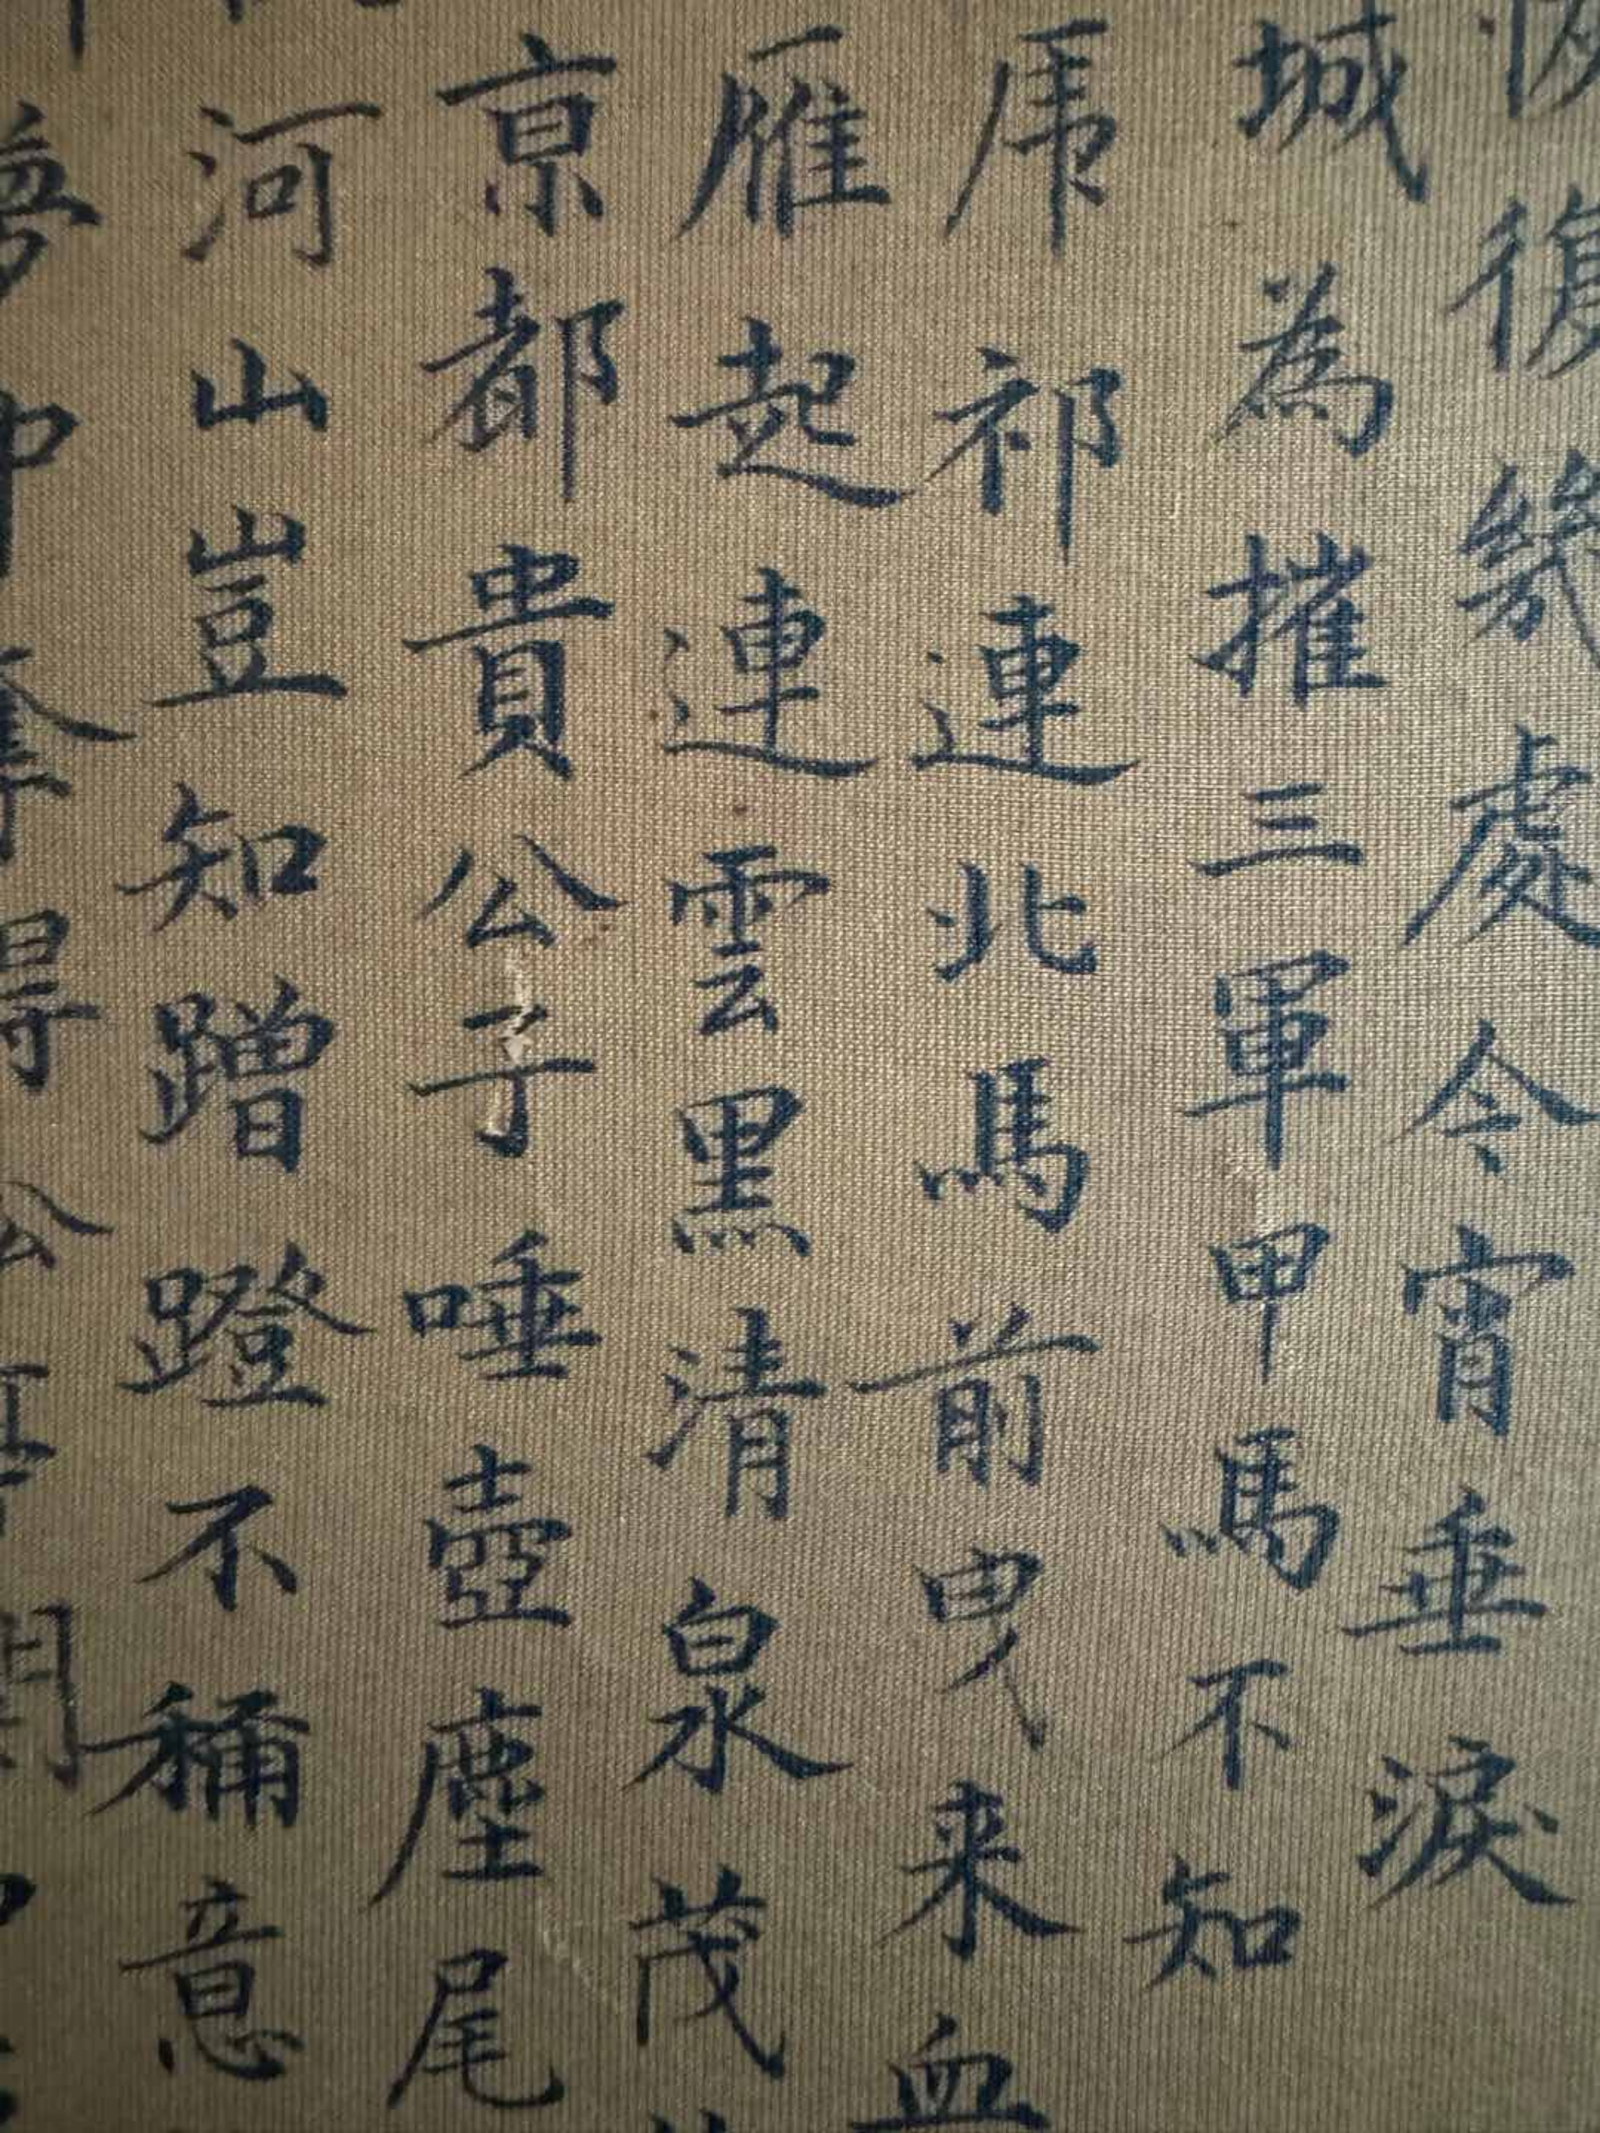 復幾處今宵垂淚
城為摧三軍甲馬不知
祁連北馬前曳来血
雁起連雲黑清泉茂
京都貴公子唾壺塵尾
河山豈知蹭蹬不稱意
夢中奪得公